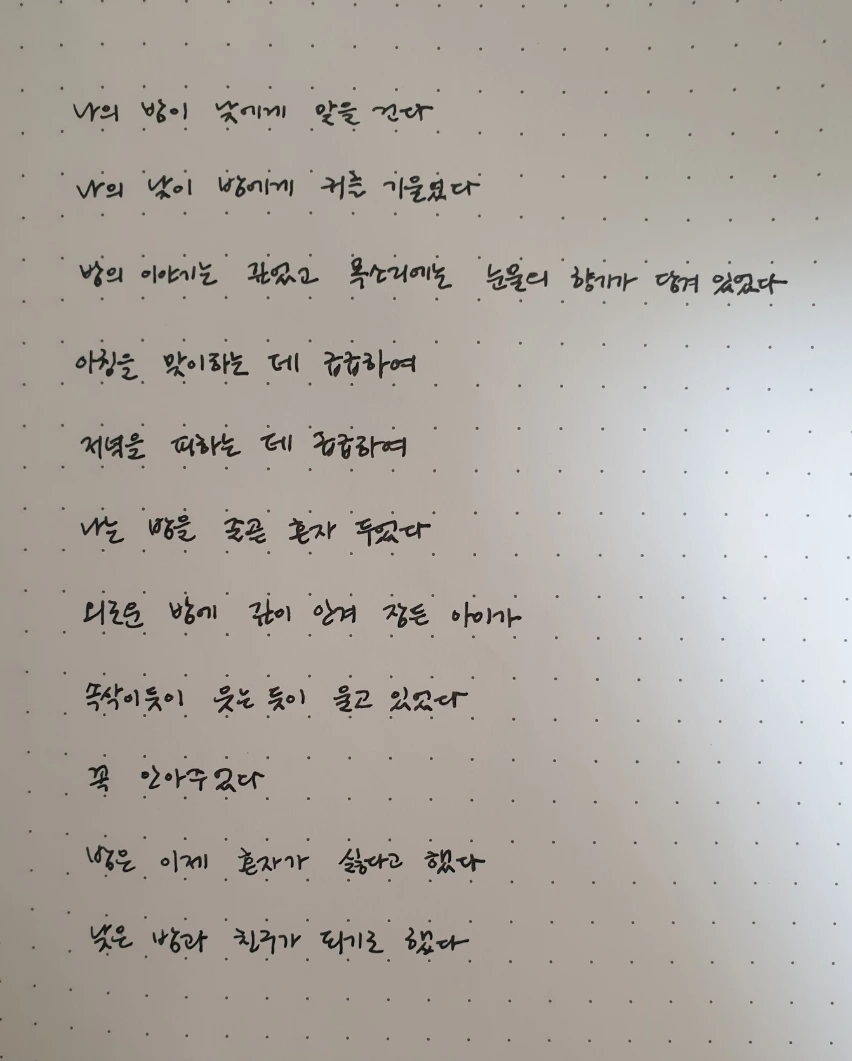 나의 밤이 낮에게 말을 건다
나의 낮이 밤에게 귀를 기울였다
밤의 이야기는 길었고 목소리에는 눈물의 향기가 담겨 있었다
아침을 맞이하는 데 급급하여
저녁을 피하는 데 급급하여
나는 밤을 줄곧 혼자 두었다
외로운 밤에 깊이 안겨 잠든 아이가
속삭이듯이 웃는 듯이 울고 있었다
꼭 안아주었다
밤은 이제 혼자가 싫다고 했다
낮은 밤과 친구가 되기로 했다